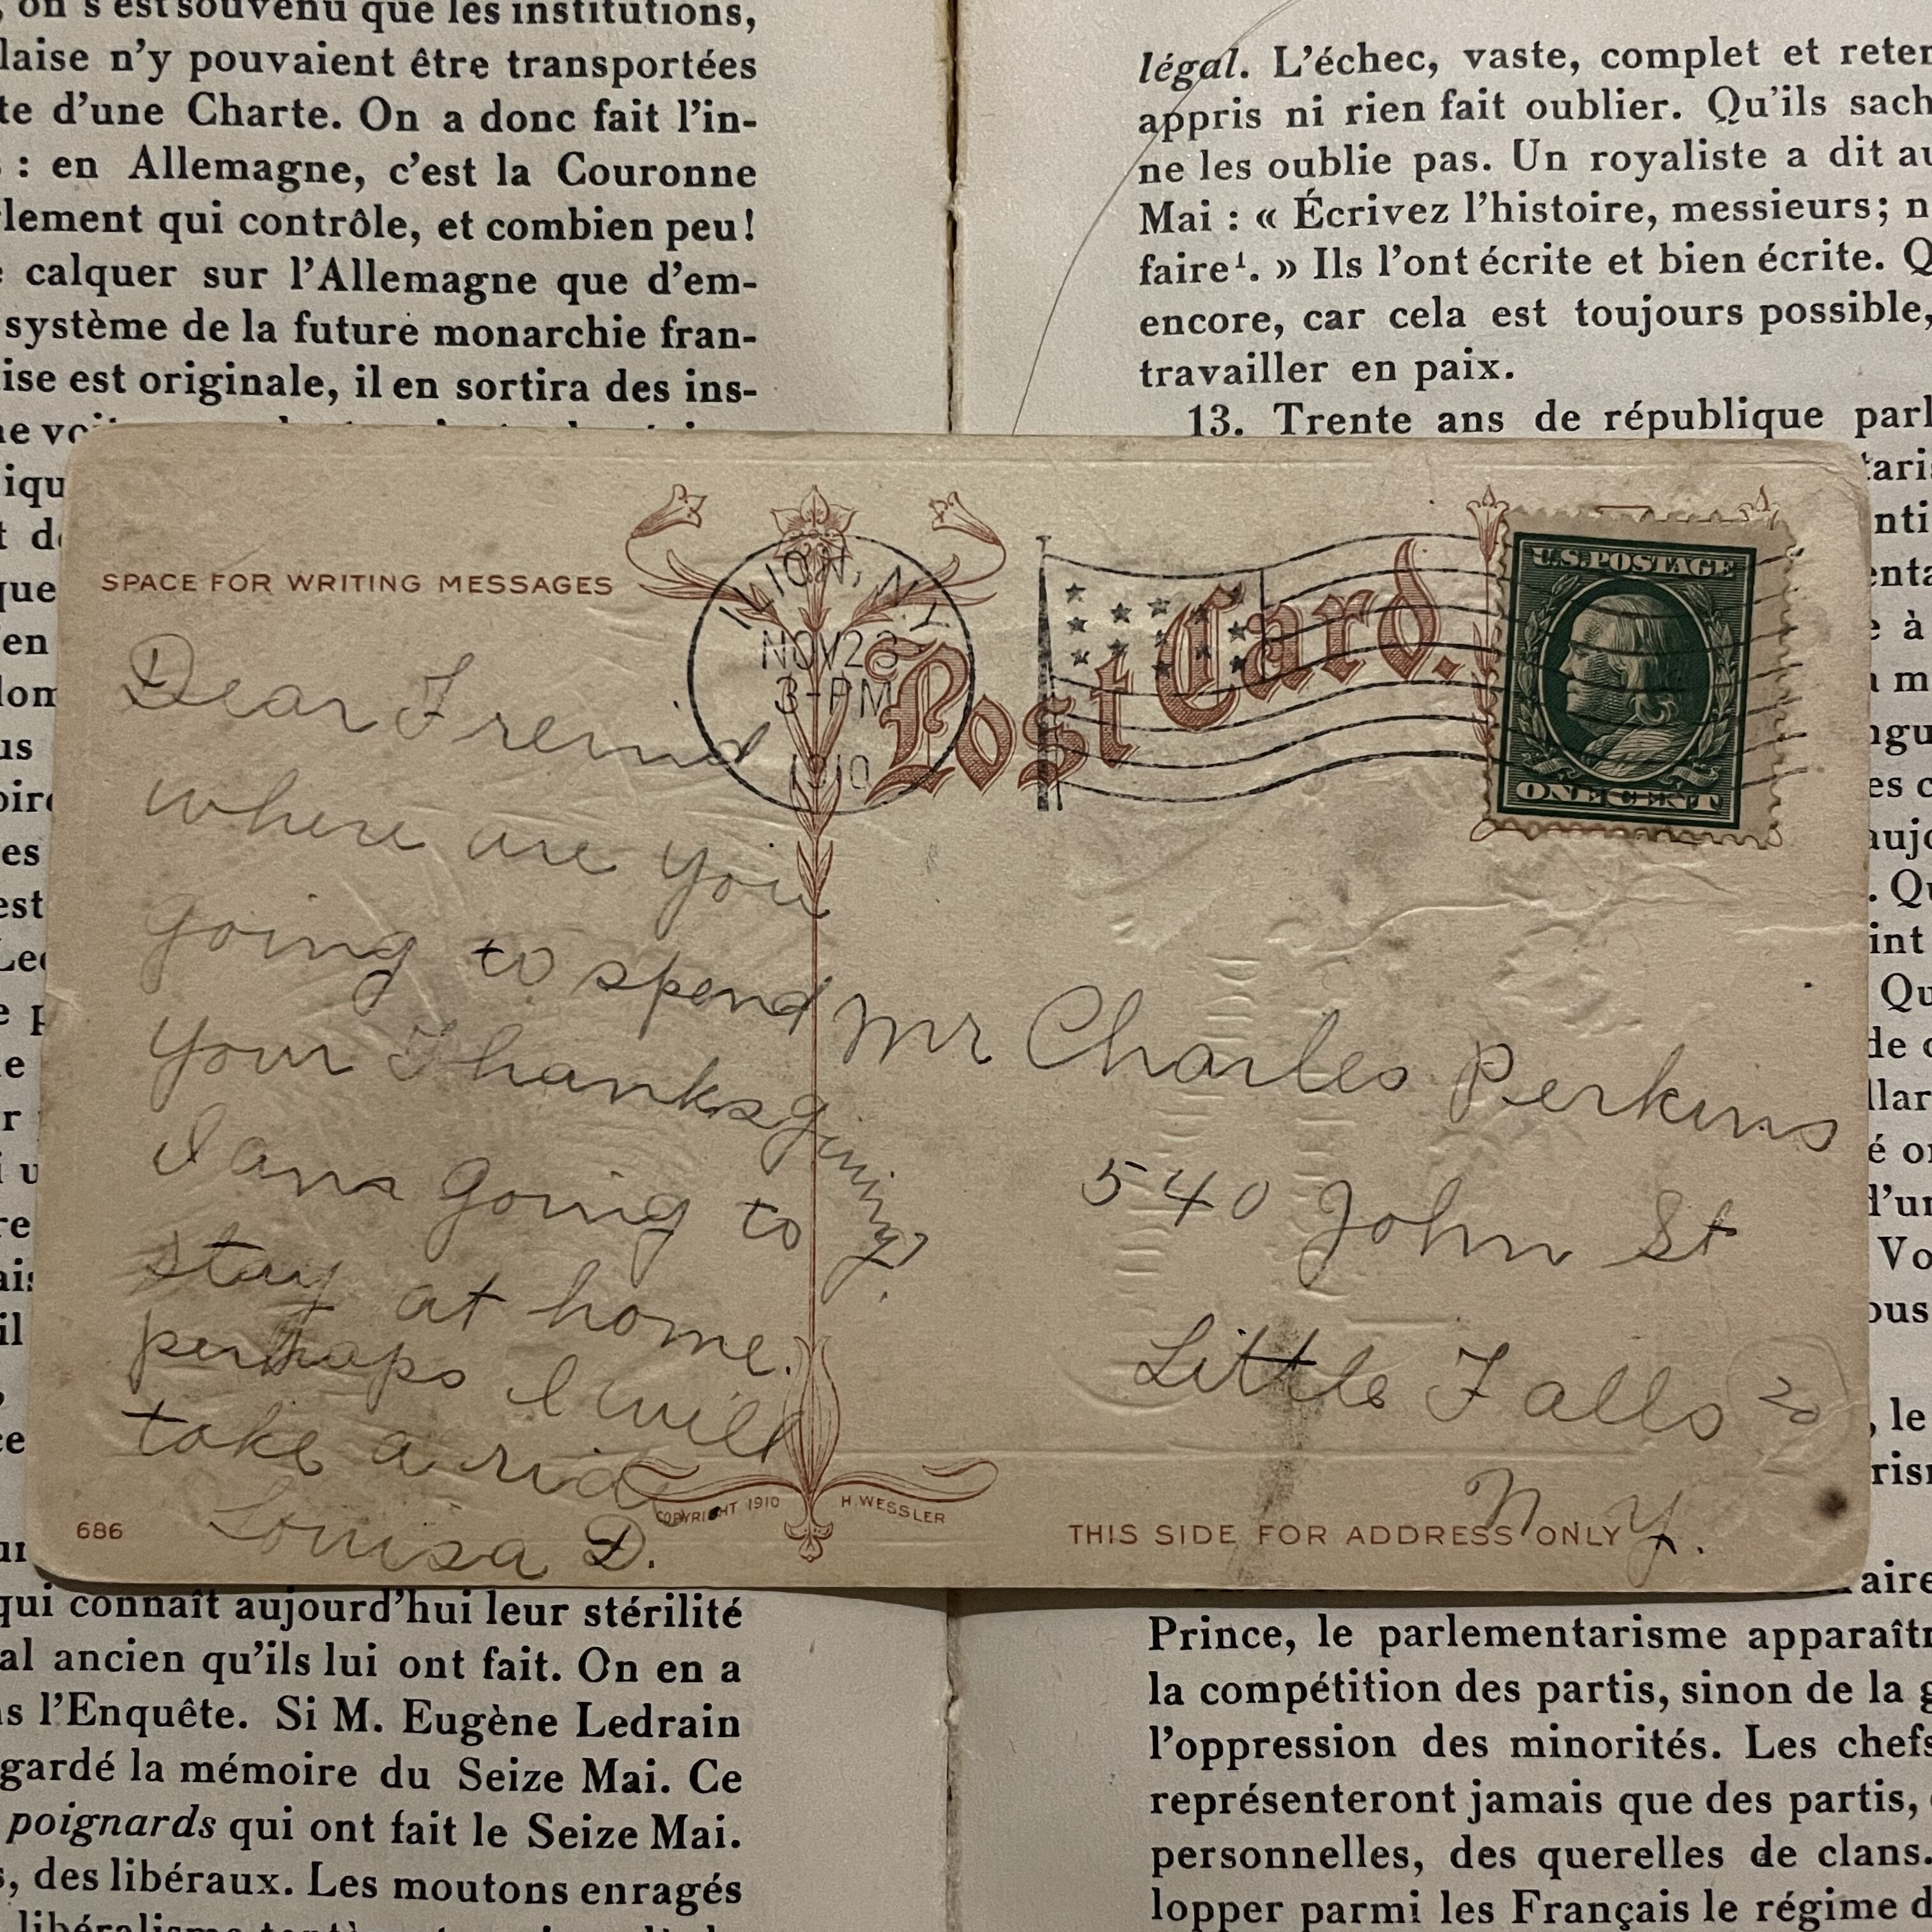 on s'est souvenu que les institutions,
laise n'y pouvaient être transportées
te d'une Charte. On a donc fait l'in-
: en Allemagne, c'est la Couronne
lement qui contrôle, et combien peu!
calquer sur l'Allemagne que d'em-
système de la future monarchie fran-
ise est originale, il en sortira des ins-
légal. L'échec, vaste, complet et reten
appris ni rien fait oublier. Qu'ils sach
ne les oublie pas. Un royaliste a dit au
Mai : « Écrivez l'histoire, messieurs; n
faire¹. » Ils l'ont écrite et bien écrite. Q
encore, car cela est toujours possible,
travailler en paix.
13. Trente ans de république parl
SPACE FOR WRITING MESSAGES
Dear Freind
where are you
going to spend
your Thanksgiving?
I am going to
stay at home.
perhaps I will
take a ride
Louisa D.
686
ILION, N.Y.
NOV 23
3-PM
1910
Post Card.
U.S. POSTAGE
ONE CENT
Mr Charles Perkins
540 John St
Little Falls
20
N. Y.
COPYRIGHT 1910 H. WESSLER
THIS SIDE FOR ADDRESS ONLY
qui connaît aujourd'hui leur stérilité
al ancien qu'ils lui ont fait. On en a
s l'Enquête. Si M. Eugène Ledrain
gardé la mémoire du Seize Mai. Ce
poignards qui ont fait le Seize Mai.
, des libéraux. Les moutons enragés
Prince, le parlementarisme apparaîtr
la compétition des partis, sinon de la g
l'oppression des minorités. Les chefs
représenteront jamais que des partis,
personnelles, des querelles de clans.
lopper parmi les Français le régime d